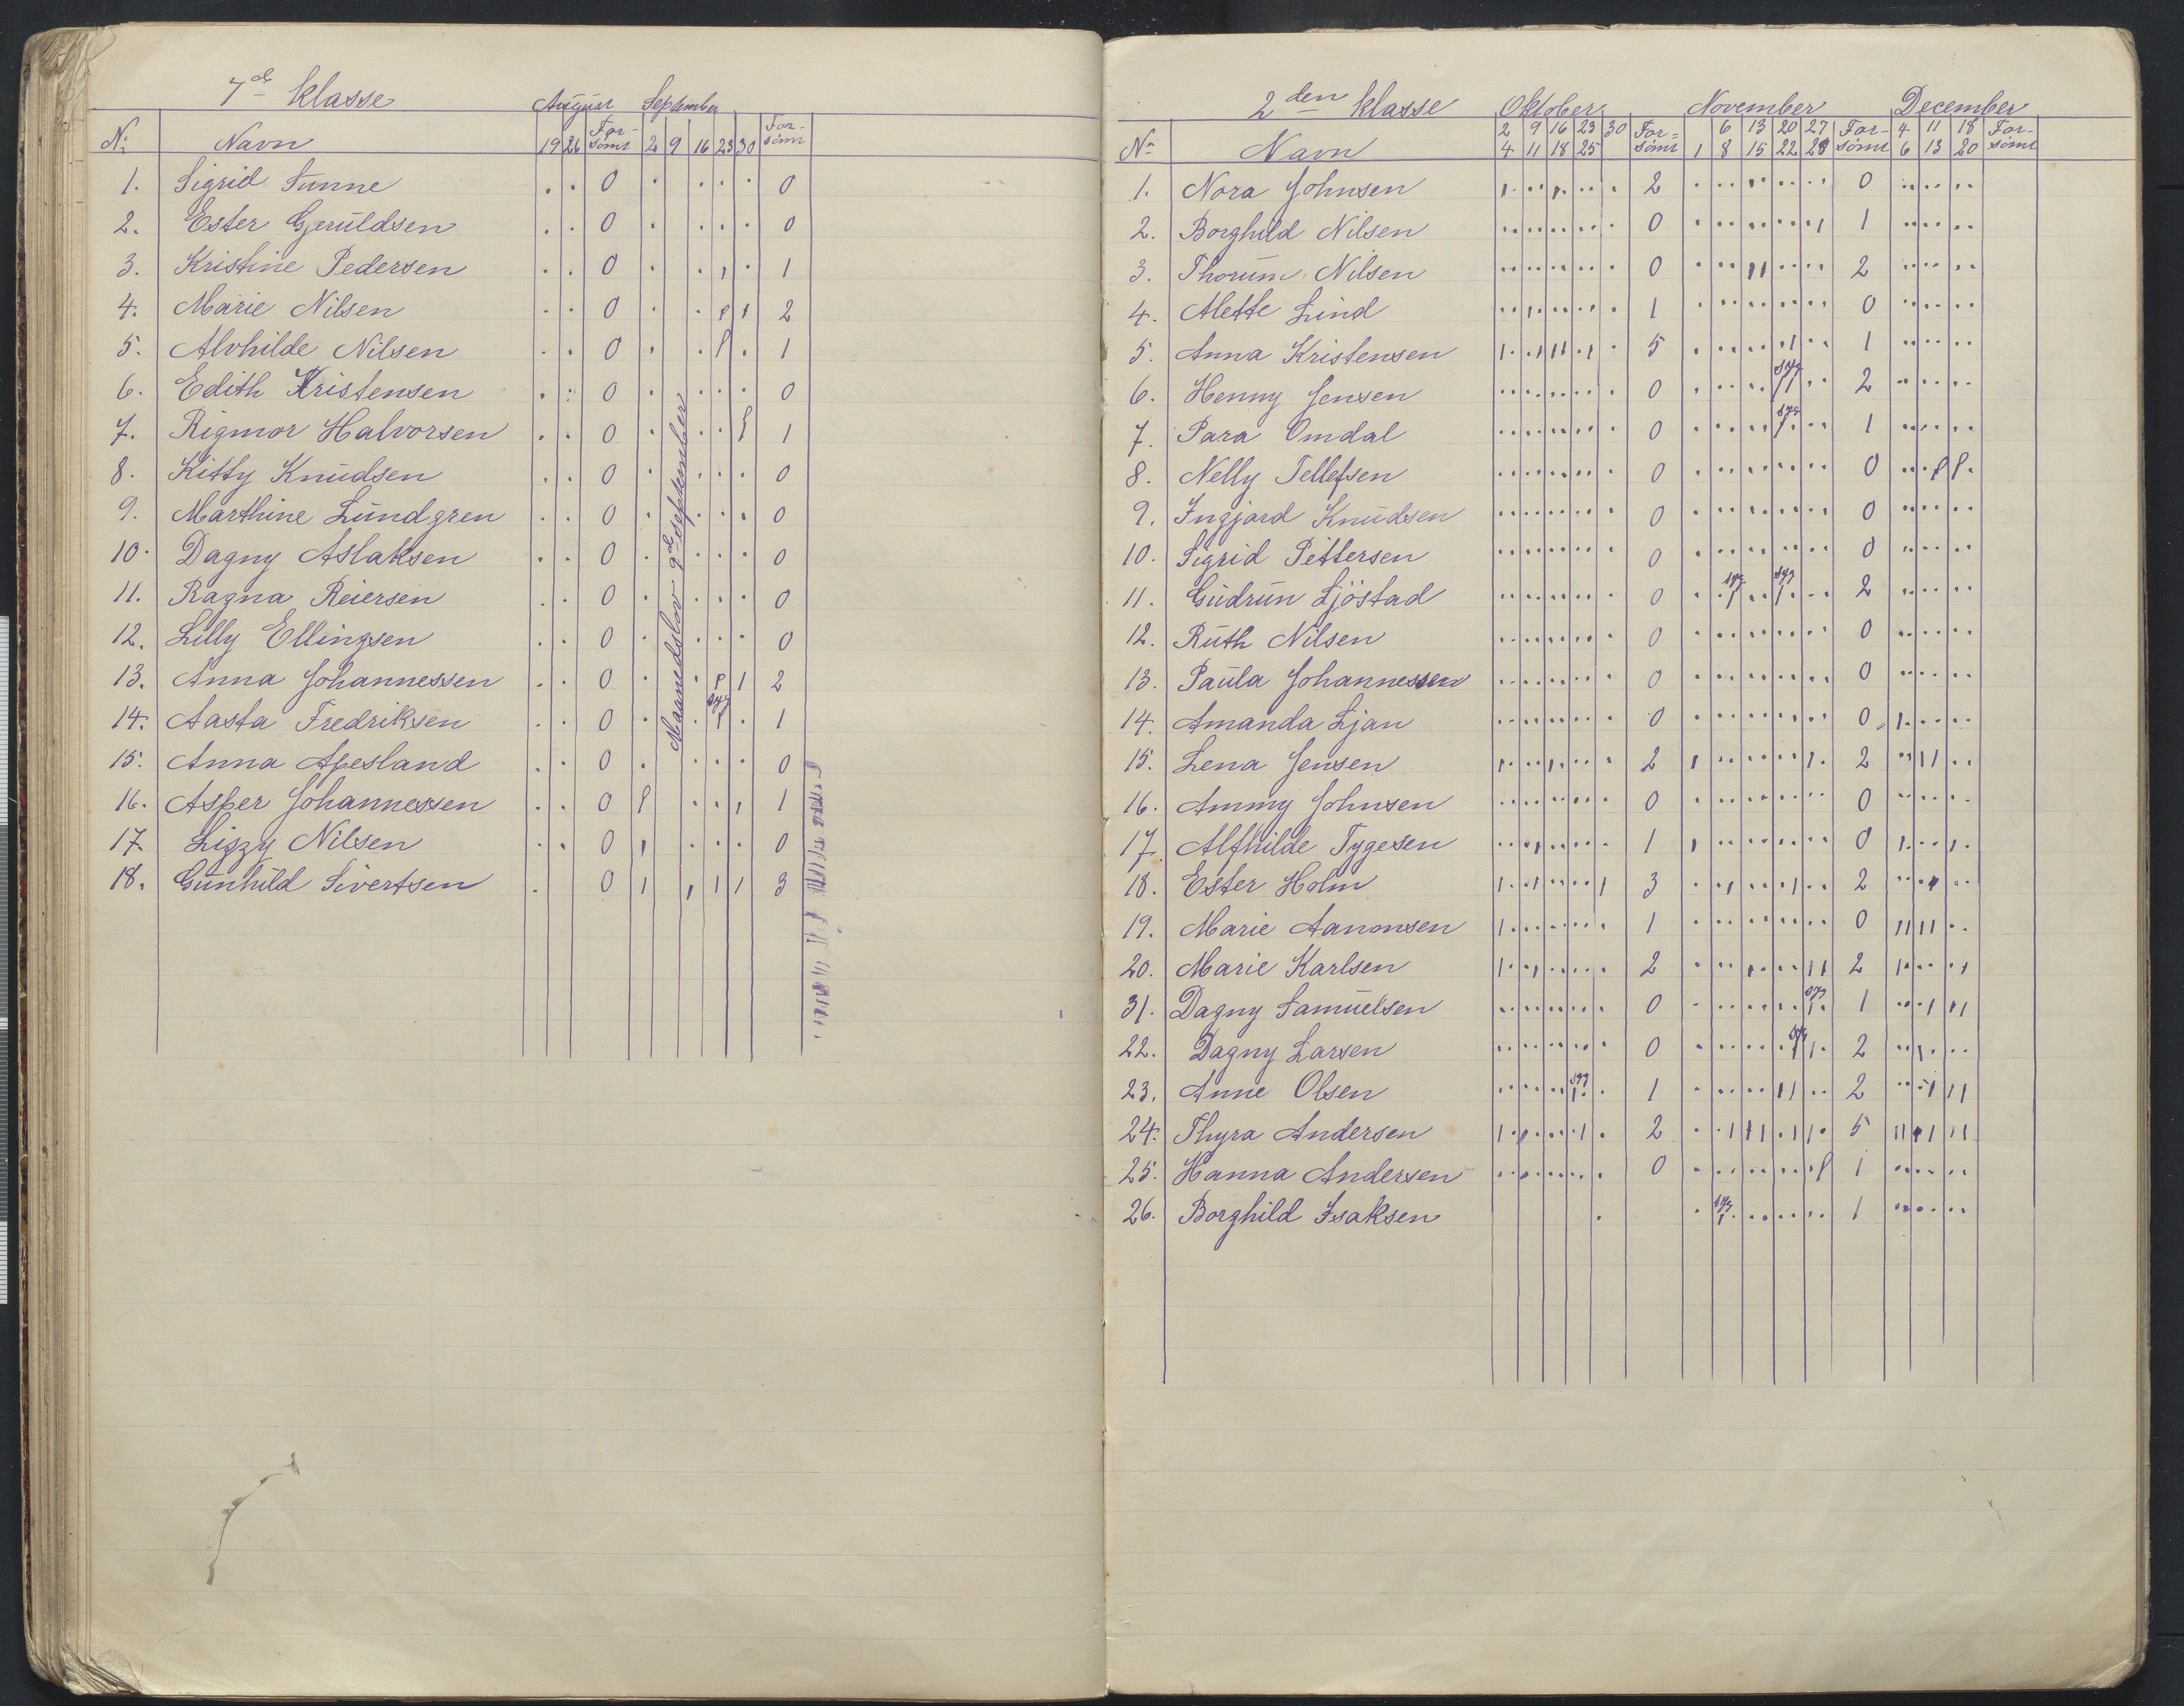 7de Klasse
August September
No Navn 19 26 For-sömt 2 9 16 23 30 For-sömt
1. Sigrid Sunne . . 0 . . . . 0
2. Ester Gjeruldsen . . 0 . . . . 0
3. Kristine Pedersen . . 0 . . ı . 1
4. Marie Nilsen . . 0 . . ı ı 2
5. Alvhilde Nilsen . . 0 . . ı . 1
6. Edith Kristensen . . 0 . . . . 0
7. Rigmor Halvorsen . . 0 . . . ı 1
8. Kitty Knudsen . . 0 . . . . 0
9. Marthine Lundgren . . 0 . . . . 0
10. Dagny Aslaksen . . 0 . . . . 0
11. Ragna Reiersen . . 0 . . . . 0
12. Lilly Ellingsen . . 0 . . . . 0
13. Anna Johannessen . . 0 . . ı ı 2
14. Aasta Fredriksen . . 0 . . syg ı . 1
15. Anna Apesland . . 0 . . . . 0
16. Asper Johannessen . . 0 ı . . ı 1
17. Lizzy Nilsen . . 0 ı . . . 0
18. Gunhild Sivertsen . 0 ı ı ı ı 3
Maanedslov 9de september
2den Klasse
Oktober November December
No Navn 2 4 9 11 16 18 23 25 30 For=sömt 1 6 8 13 15 20 22 27 28 For-sömt 4 6 11 13 18 20 For-sömt
1. Nora Johnsen 2 0
2. Borghild Nilsen 0 1
3. Thorun Nilsen 0 2
4. Alette Lind 1 0
5. Anna Kristensen 5 1
6. Henny Jensen 0 syg 2
7. Para Omdal 0 syg 1
8. Nelly Tellefsen 0 0
9. Ingjard Knudsen 0 0
10. Sigrid Pettersen 0 0
11. Gudrun Ljöstad 0 syg syg 2
12. Ruth Nilsen 0 0
13. Paula Johannessen 0 0
14. Amanda Ljan 0 0
15. Lena Jensen 2 2
16. Ammy Johnsen 0 0
17. Alfhilde Tygesen 1 0
18. Ester Holm 3 2
19. Marie Aanonsen 1 0
20. Marie Karlsen 2 2
31. Dagny Samuelsen 0 syg 1
22. Dagny Larsen 0 syg 2
23. Anne Olsen syg 1 2
24. Thyra Andersen 2 5
25. Hanna Andersen 0 1
26. Borghild Isaksen syg 1